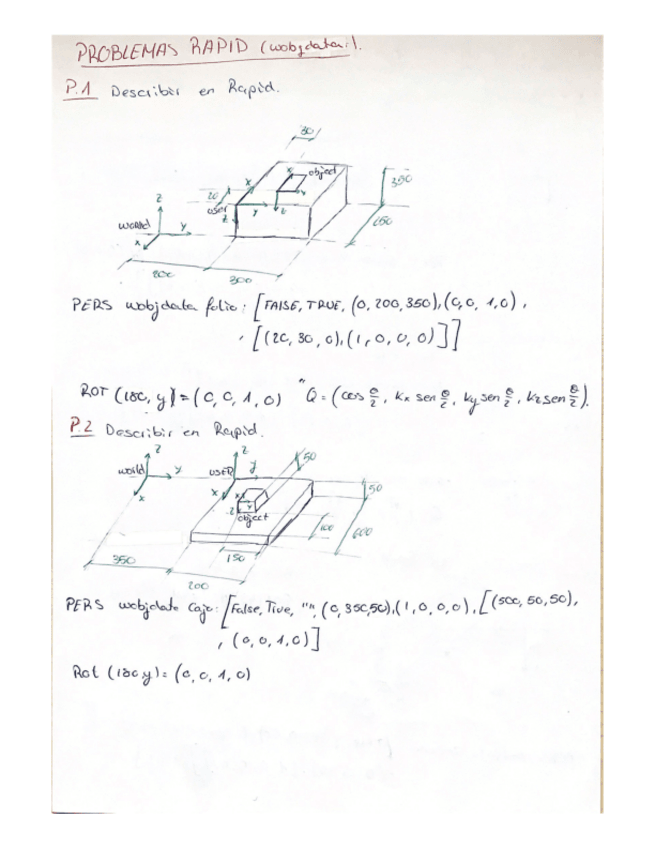 PROBLEMAS RAPID (wobjdata).
P.1 Describir en Rapid.
30
object
x
x
20
350
user
y
z
z
650
world
z
y
x
200
300
PERS wobjdata folio: [FALSE, TRUE, (0, 200, 350), (0, 0, 1, 0),
, [(20, 30, 0), (1, 0, 0, 0)]]
ROT (180, y) = (0, 0, 1, 0) "Q = (cos θ/2, kx sen θ/2, ky sen θ/2, kz sen θ/2).
P.2 Describir en Rapid.
z
z
50
world
y
USER
y
x
x
x
50
z
y
object
100
600
350
150
200
PERS wobjdata Caja: [False, True, "", (0, 350, 50), (1, 0, 0, 0), [(500, 50, 50),
, (0, 0, 1, 0)]
Rot (180 y) = (0, 0, 1, 0)